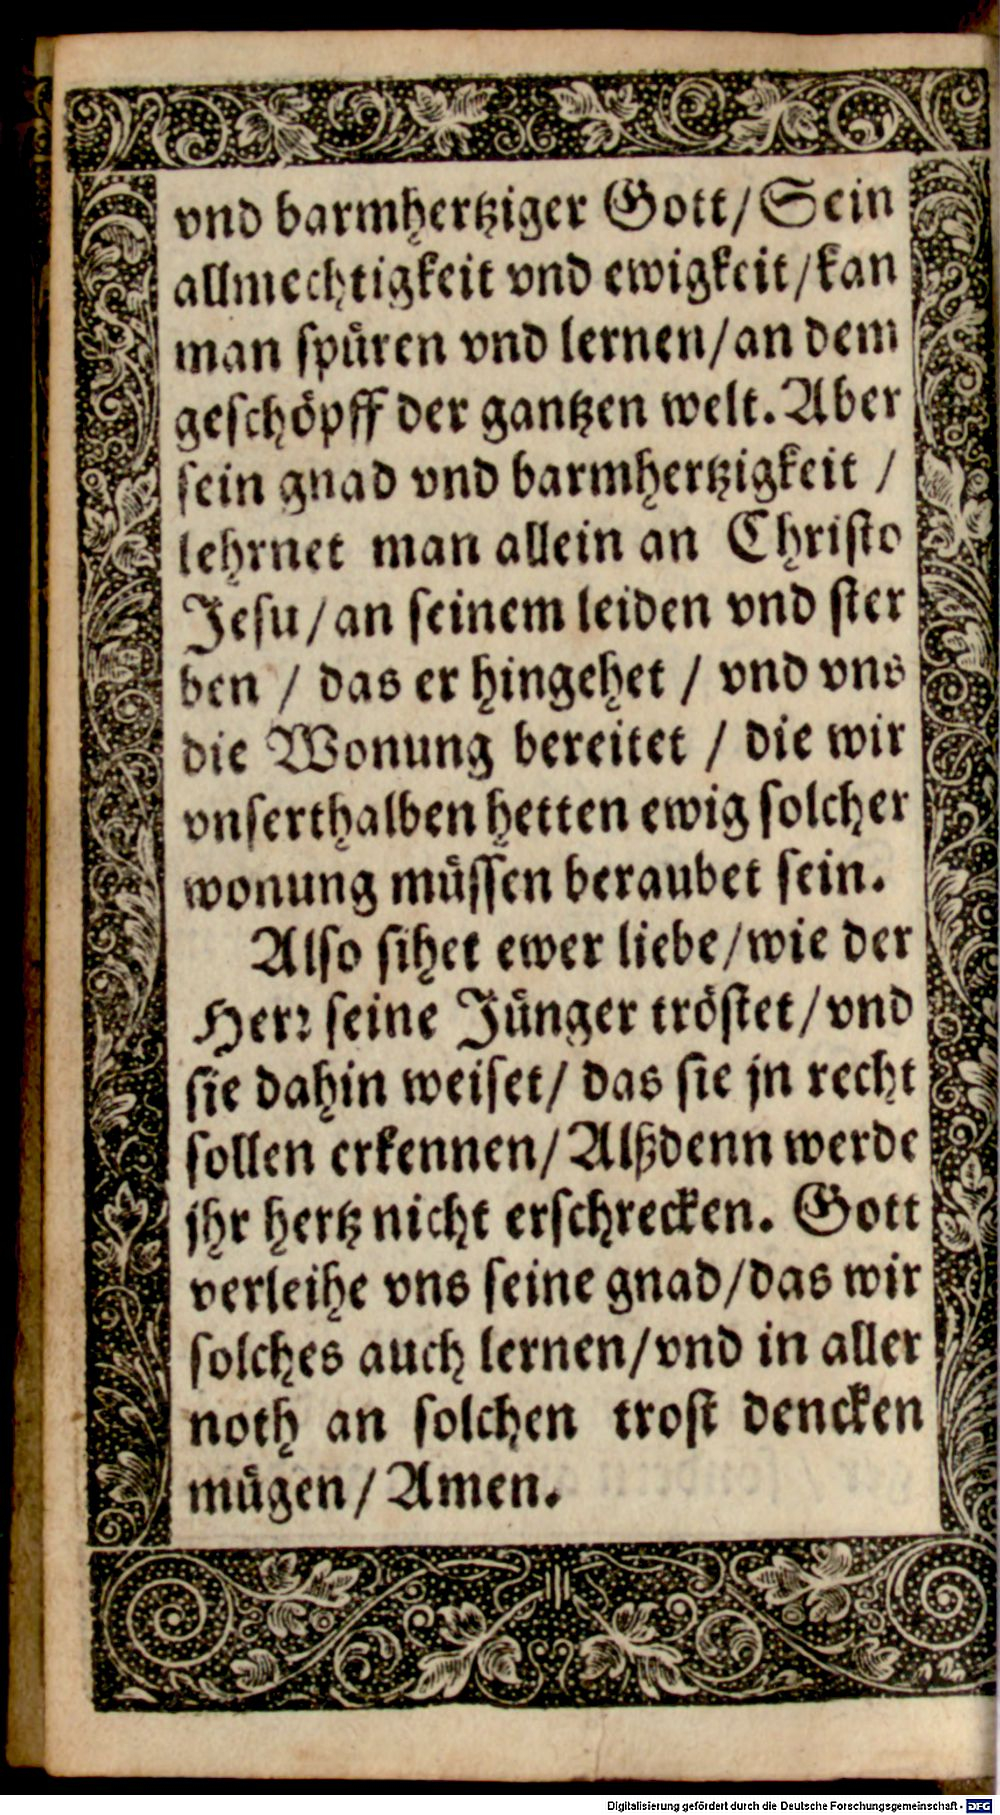 vnd barmhertziger Gott/ Sein
allmechtigkeit vnd ewigkeit/ kan
man spuͤren vnd lernen/ an dem
geschoͤpff der gantzen welt. Aber
sein gnad vnd barmhertzigkeit /
lehrnet man allein an Christo
Jesu/ an seinem leiden vnd ster
ben / das er hingehet / vnd vns
die Wonung bereitet / die wir
vnserthalben hetten ewig solcher
wonung muͤssen beraubet sein.
Also sihet ewer liebe/ wie der
Herꝛ seine Juͤnger troͤstet/ vnd
sie dahin weiset/ das sie jn recht
sollen erkennen/ Alßdenn werde
jhr hertz nicht erschrecken. Gott
verleihe vns seine gnad/ das wir
solches auch lernen/ vnd in aller
noth an solchen trost dencken
muͤgen/ Amen.
Digitalisierung gefördert durch die Deutsche Forschungsgemeinschaft - DFG